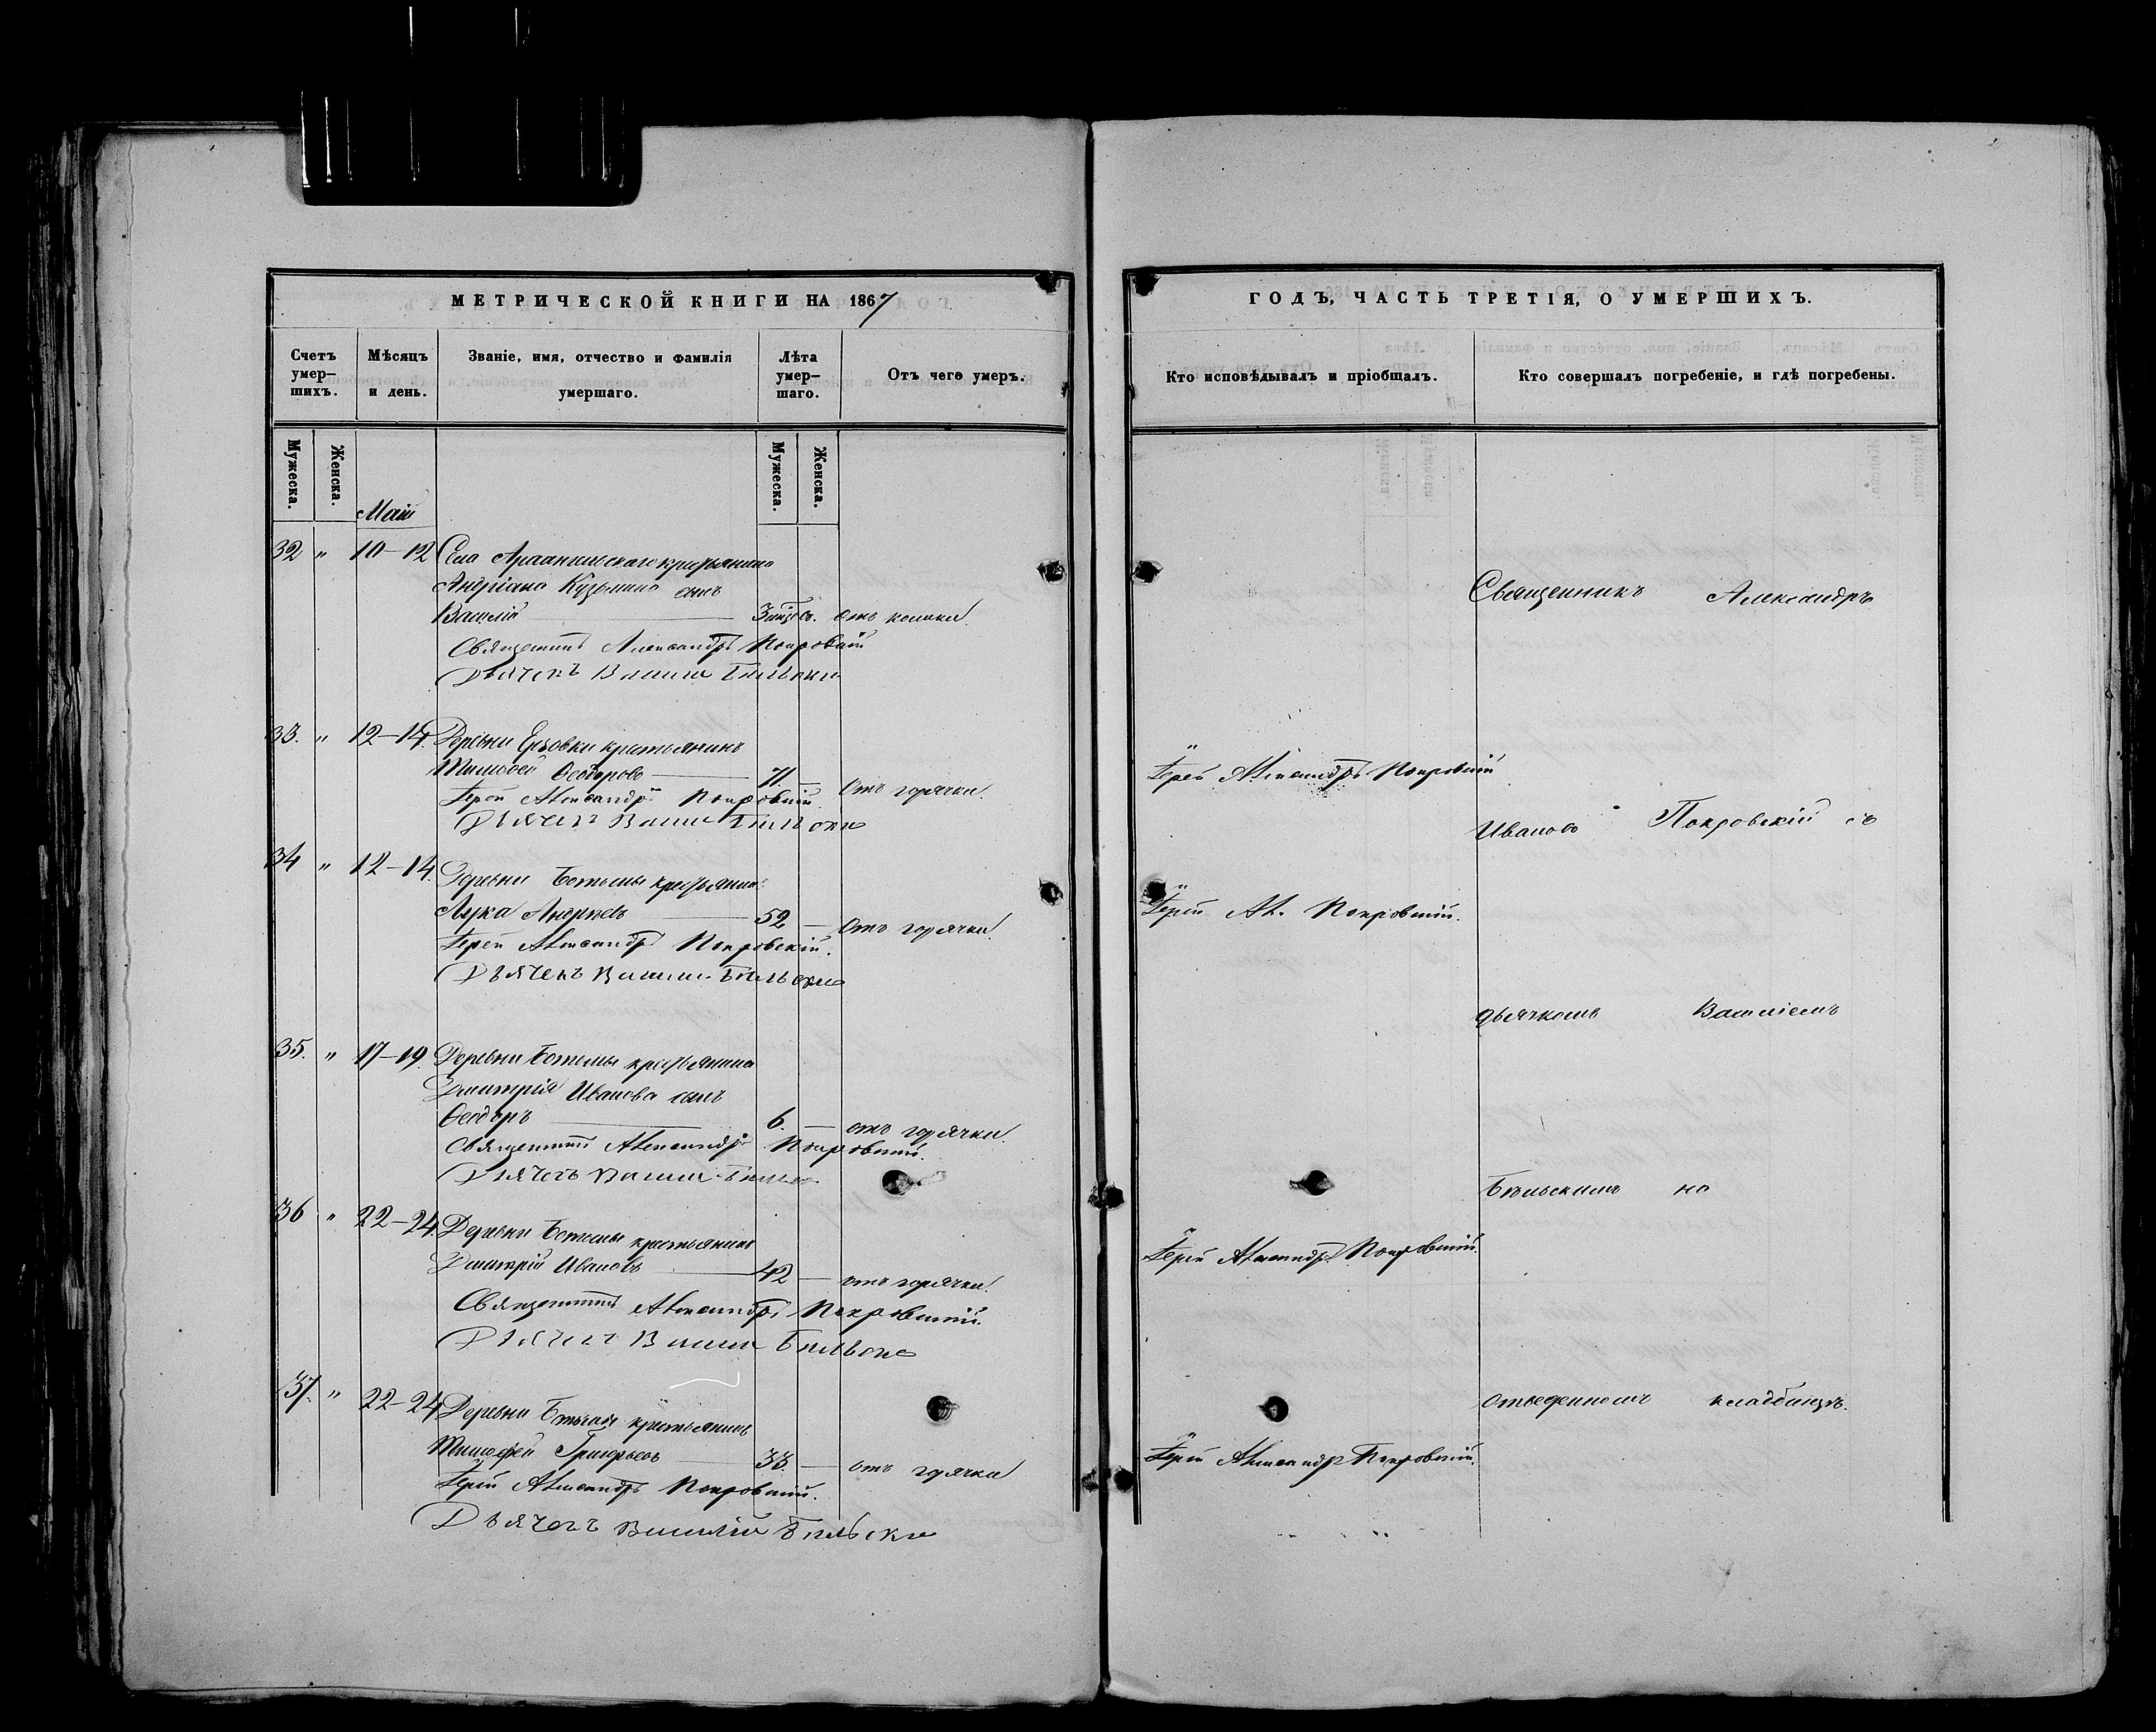 МЕТРИЧЕСКОЙ КНИГИ НА 1867
Счетъ умер-шихъ.
Мѣсяцъ и день.
Званіе, имя, отчество и фамилія умершаго.
Лѣта умер-шаго.
Отъ чего умеръ.
Мужеска.
Женска.
Мужеска.
Женска.
Маій
32 " 10–12 Села Архангельскаго крестьянина
Андріана Кузьмина сынъ
Василій отъ кашля.
Священникъ Александръ Покровскій
Дьячекъ Василій Бѣльскій
33. " 12–14. Деревни крестьянинъ
Тимофей Ѳеодоровъ 71. — Отъ горячки.
Іерей Александръ Покровскій.
Дьячекъ Василій Бѣльскій
34 " 12–14. Деревни крестьянинъ
Лука Андреевъ 52 — Отъ горячки.
Іерей Александръ Покровскій.
Дьячекъ Василій Бѣльскій
35. " 17–19. Деревни крестьянина
Дмитрія Иванова сынъ
Ѳеодоръ 6. — отъ горячки.
Священникъ Александръ Покровскій.
Дьячекъ Василій Бѣльскій
36 " 22–24. Деревни крестьянинъ
Дмитрій Ивановъ 42 — отъ горячки.
Священникъ Александръ Покровскій.
Дьячекъ Василій Бѣльскій
37. " 22–24 Деревни крестьянинъ
Тимофей Григорьевъ 33. — отъ горячки
Іерей Александръ Покровскій.
Дьячекъ Василій Бѣльскій
ГОДЪ, ЧАСТЬ ТРЕТІЯ, О УМЕРШИХЪ.
Кто исповѣдывалъ и пріобщалъ.
Кто совершалъ погребеніе, и гдѣ погребены.
Священникъ Александръ
Іерей Александръ Покровскій
Ивановъ Покровскій съ
Іерей Ал. Покровскій.
дьячкомъ Василіемъ
Бѣльскимъ на
Іерей Александръ Покровскій.
отведенномъ кладбищѣ.
Іерей Александръ Покровскій.